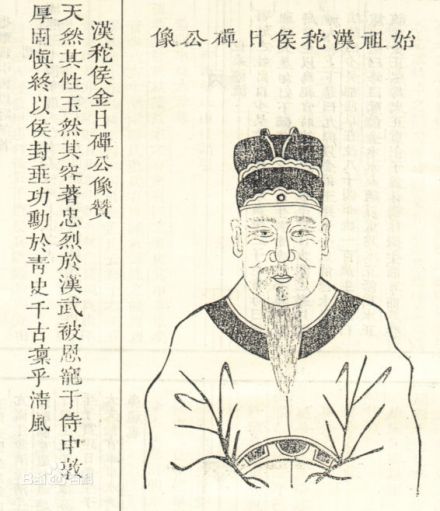 始祖漢秺侯日磾公像
漢秺侯金日磾公像贊
天然其性玉然其容著忠烈於漢武被恩寵于侍中敦
厚固慎終以侯封垂功勳於青史千古凜乎清風
Bai百科